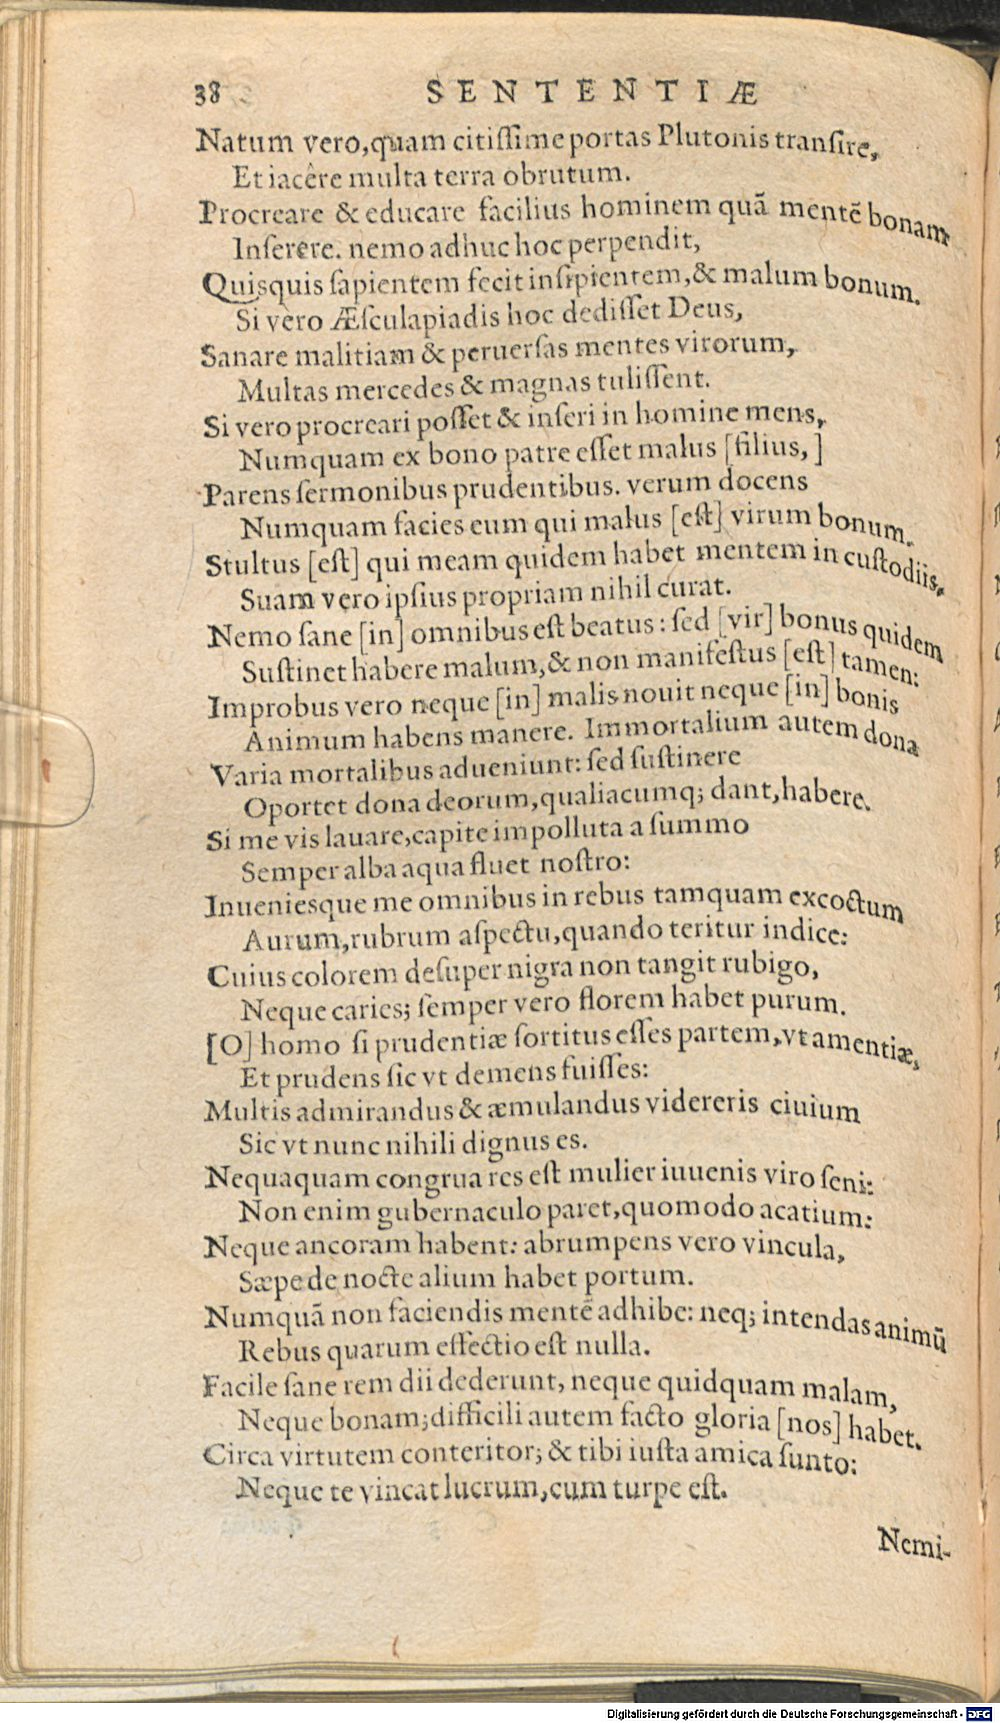 38 SENTENTIÆ
Natum vero, quam citiſſime portas Plutonis tranſire,
Et iacêre multa terra obrutum.
Procreare & educare facilius hominem quã mentẽ bonam
Inſerere. nemo adhuc hoc perpendit,
Quisquis ſapientem fecit inſipientem, & malum bonum.
Si vero Æſculapiadis hoc dediſſet Deus,
Sanare malitiam & peruerſas mentes virorum,
Multas mercedes & magnas tuliſſent.
Si vero procreari poſſet & inſeri in homine mens,
Numquam ex bono patre eſſet malus [filius, ]
Parens ſermonibus prudentibus. verum docens
Numquam facies eum qui malus [eſt] virum bonum.
Stultus [eſt] qui meam quidem habet mentem in cuſtodiis,
Suam vero ipſius propriam nihil curat.
Nemo ſane [in] omnibus eſt beatus: ſed [vir] bonus quidem
Suſtinet habere malum, & non manifeſtus [eſt] tamen:
Improbus vero neque [in] malis nouit neque [in] bonis
Animum habens manere. Immortalium autem dona
Varia mortalibus adueniunt: ſed ſuſtinere
Oportet dona deorum, qualiacumq; dant, habere.
Si me vis lauare, capite impolluta a ſummo
Semper alba aqua fluet noſtro:
Inueniesque me omnibus in rebus tamquam excoctum
Aurum, rubrum aſpectu, quando teritur indice:
Cuius colorem deſuper nigra non tangit rubigo,
Neque caries; ſemper vero florem habet purum.
[O] homo ſi prudentiæ ſortitus eſſes partem, vt amentiæ,
Et prudens ſic vt demens fuiſſes:
Multis admirandus & æmulandus videreris ciuium
Sic vt nunc nihili dignus es.
Nequaquam congrua res eſt mulier iuuenis viro ſeni:
Non enim gubernaculo paret, quomodo acatium:
Neque ancoram habent: abrumpens vero vincula,
Sæpe de nocte alium habet portum.
Numquã non faciendis mentẽ adhibe: neq; intendas animũ
Rebus quarum effectio eſt nulla.
Facile ſane rem dii dederunt, neque quidquam malam,
Neque bonam; difficili autem facto gloria [nos] habet.
Circa virtutem conteritor; & tibi iuſta amica ſunto:
Neque te vincat lucrum, cum turpe eſt.
Nemi-
Digitalisierung gefördert durch die Deutsche Forschungsgemeinschaft - DFG